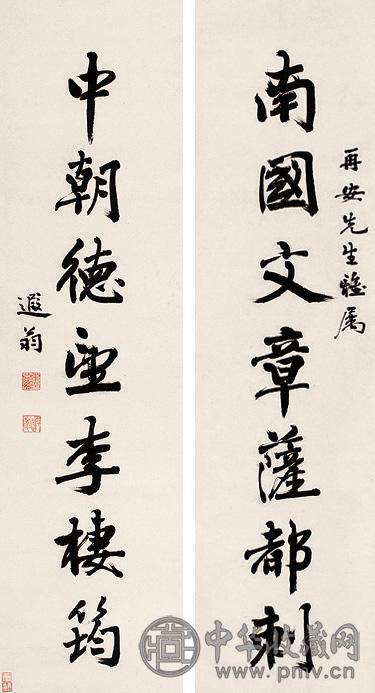 再安先生雅屬
南國文章薩都剌
中朝德望李棲筠
遐翁
中华收藏网
www.pmv.cn